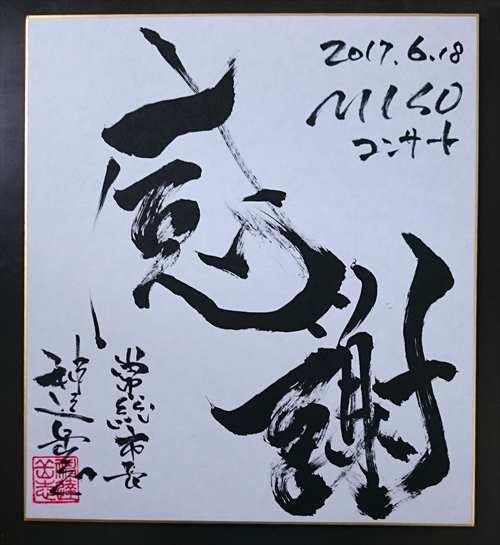 2017.6.18
MISO
コンサート
感謝
常総市長
神達岳志
神達
岳志